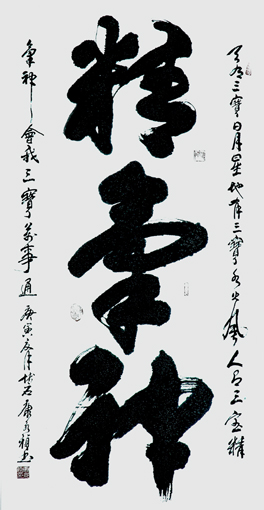 精氣神
天有三寶日月星地有三寶水火風人有三寶精
氣神會我三寶萬事通庚寅